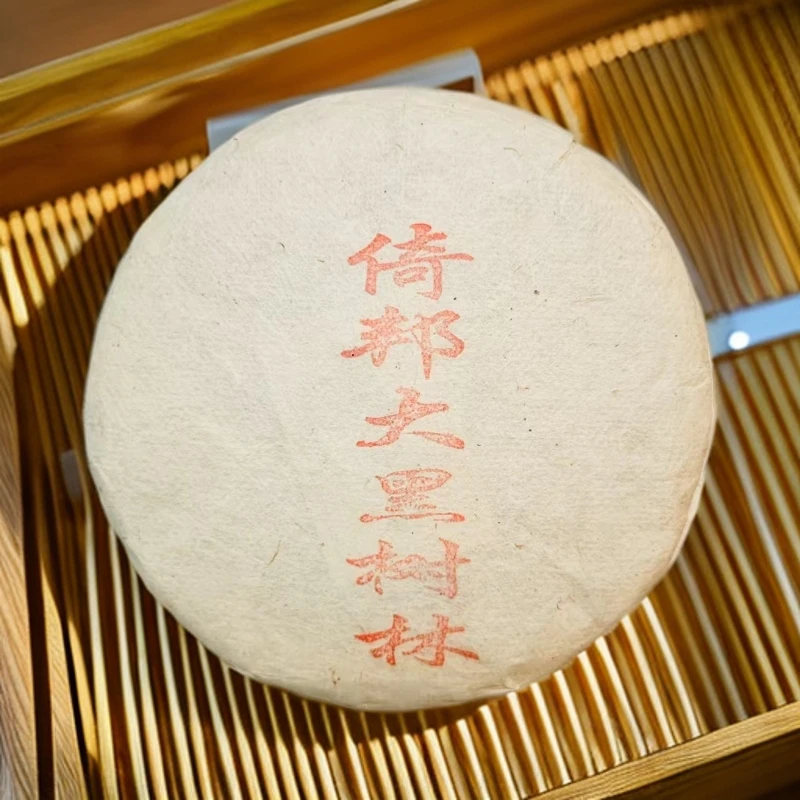 倚邦大黑树林